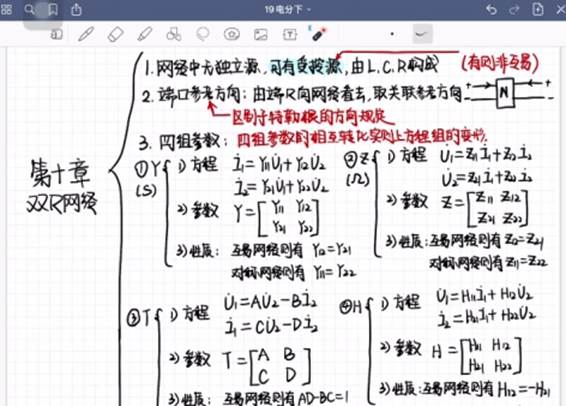 19电分下
1. 网络中无独立源,可有受控源,由L.C.R构成 (有则非互易)
2. 端口参考方向:由端口向网络看去,取关联参考方向 N
区别于特勒根的方向规定
3. 四组参数:四组参数的相互转化实则上方程组的变形
第十章
双口网络
① Y (S)
1) 方程 İ₁=Y₁₁U̇₁+Y₁₂U̇₂
İ₂=Y₂₁U̇₁+Y₂₂U̇₂
2) 参数 Y=[Y₁₁ Y₁₂
Y₂₁ Y₂₂]
3) 性质:互易网络则有 Y₁₂=Y₂₁
对称网络则有 Y₁₁=Y₂₂
② Z (Ω)
1) 方程 U̇₁=Z₁₁İ₁+Z₁₂İ₂
U̇₂=Z₂₁İ₁+Z₂₂İ₂
2) 参数 Z=[Z₁₁ Z₁₂
Z₂₁ Z₂₂]
3) 性质:互易网络则有 Z₁₂=Z₂₁
对称网络则有 Z₁₁=Z₂₂
③ T
1) 方程 U̇₁=AU̇₂-Bİ₂
İ₁=CU̇₂-Dİ₂
2) 参数 T=[A B
C D]
3) 性质:互易网络则有 AD-BC=1
④ H
1) 方程 U̇₁=H₁₁İ₁+H₁₂U̇₂
İ₂=H₂₁İ₁+H₂₂U̇₂
2) 参数 H=[H₁₁ H₁₂
H₂₁ H₂₂]
3) 性质:互易网络则有 H₁₂=-H₂₁